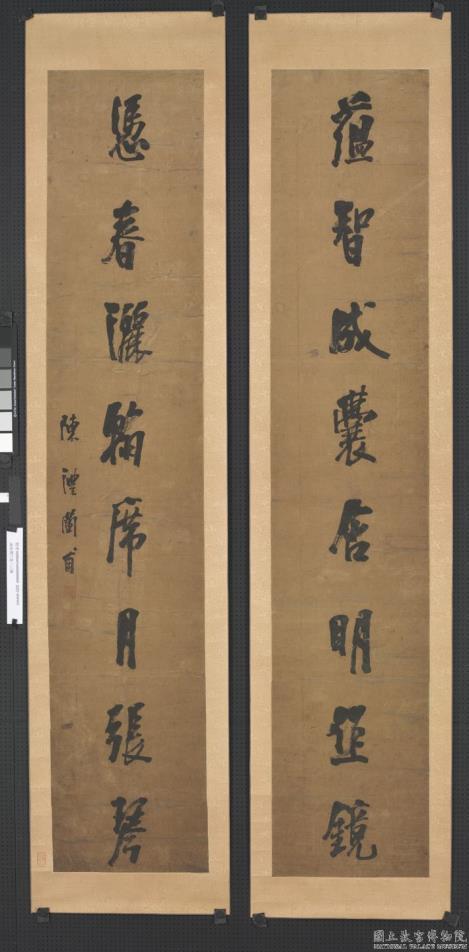 蘊智成囊含明鏡
憑春灑翰席月張琴
陳澧蘭甫
國立故宮博物院
NATIONAL PALACE MUSEUM